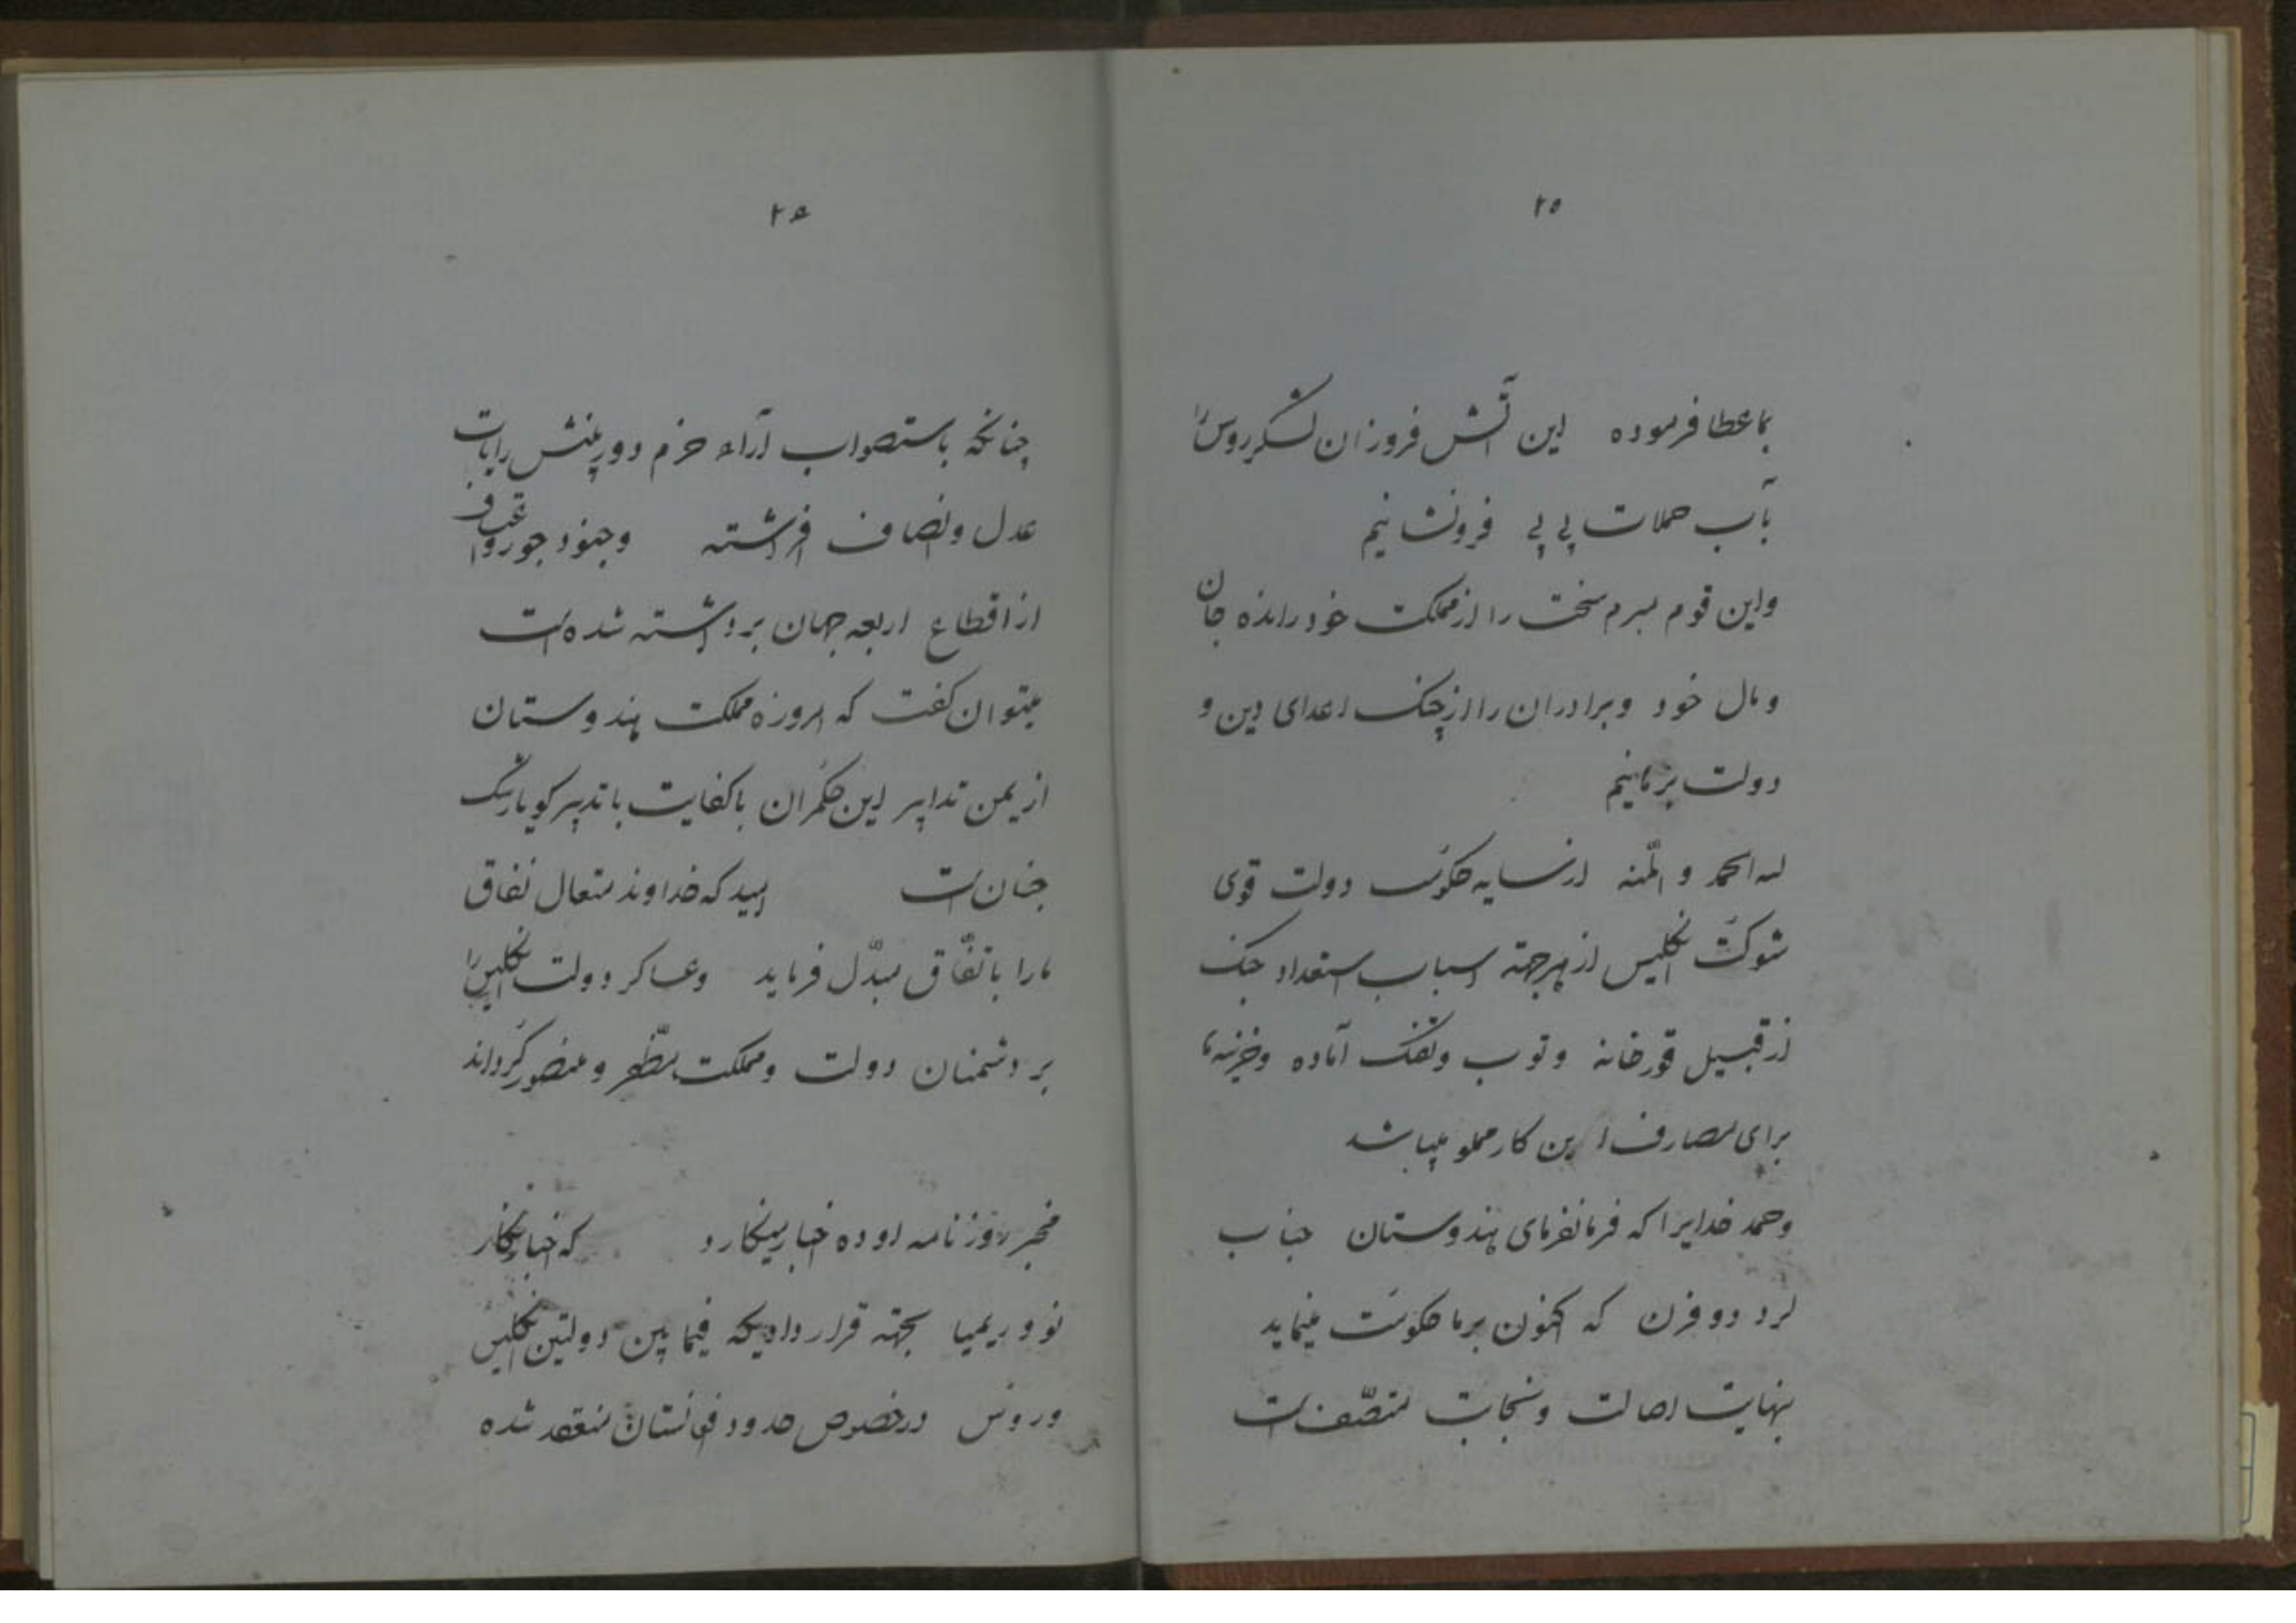 ۲۵
بما عطا فرموده این آتش فروزان لشکر روس را
بآب حملات پی پی فرونشانیم
واین قوم مبرم سخت را از مملکت خود رانده جان
ومال خود وبرادران را از چنک اعدای دین و
دولت برهانیم
لله الحمد والمنّه از سایه حکومت دولت قوی
شوکت انکلیس از هرجهة اسباب استعداد جنک
از قبیل قورخانه وتوپ وتفنک آماده وخزینه ها
برای مصارف این کار مملو میباشد
وحمد خدایرا که فرمانفرمای هندوستان جناب
لرد دوفرن که اکنون برما حکومت مینماید
بنهایت اصالت ونجابت متصّف است
چنانکه باستصواب آراء حزم دوربینش رایات
عدل وانصاف افراشته وجنود جور واعتساف
از اقطاع اربعه جهان برداشته شده است
میتوان کفت که امروزه مملکت هندوستان
از یمن تدابیر این حکمران باکفایت باتدبیر کویا رشک
جنان است امید که خداوند متعال نفاق
مارا باتفّاق مبدّل فرماید وعساکر دولت انکلیس را
بر دشمنان دولت ومملکت مظفّر ومنصور کرداند
مخبر روزنامه اوده اخبار مینکارد که اخبارنکار
نوو ریمیا بجهة قراردادیکه فیما بین دولتین انکلیس
وروس درخصوص حدود افغانستان منعقد شده